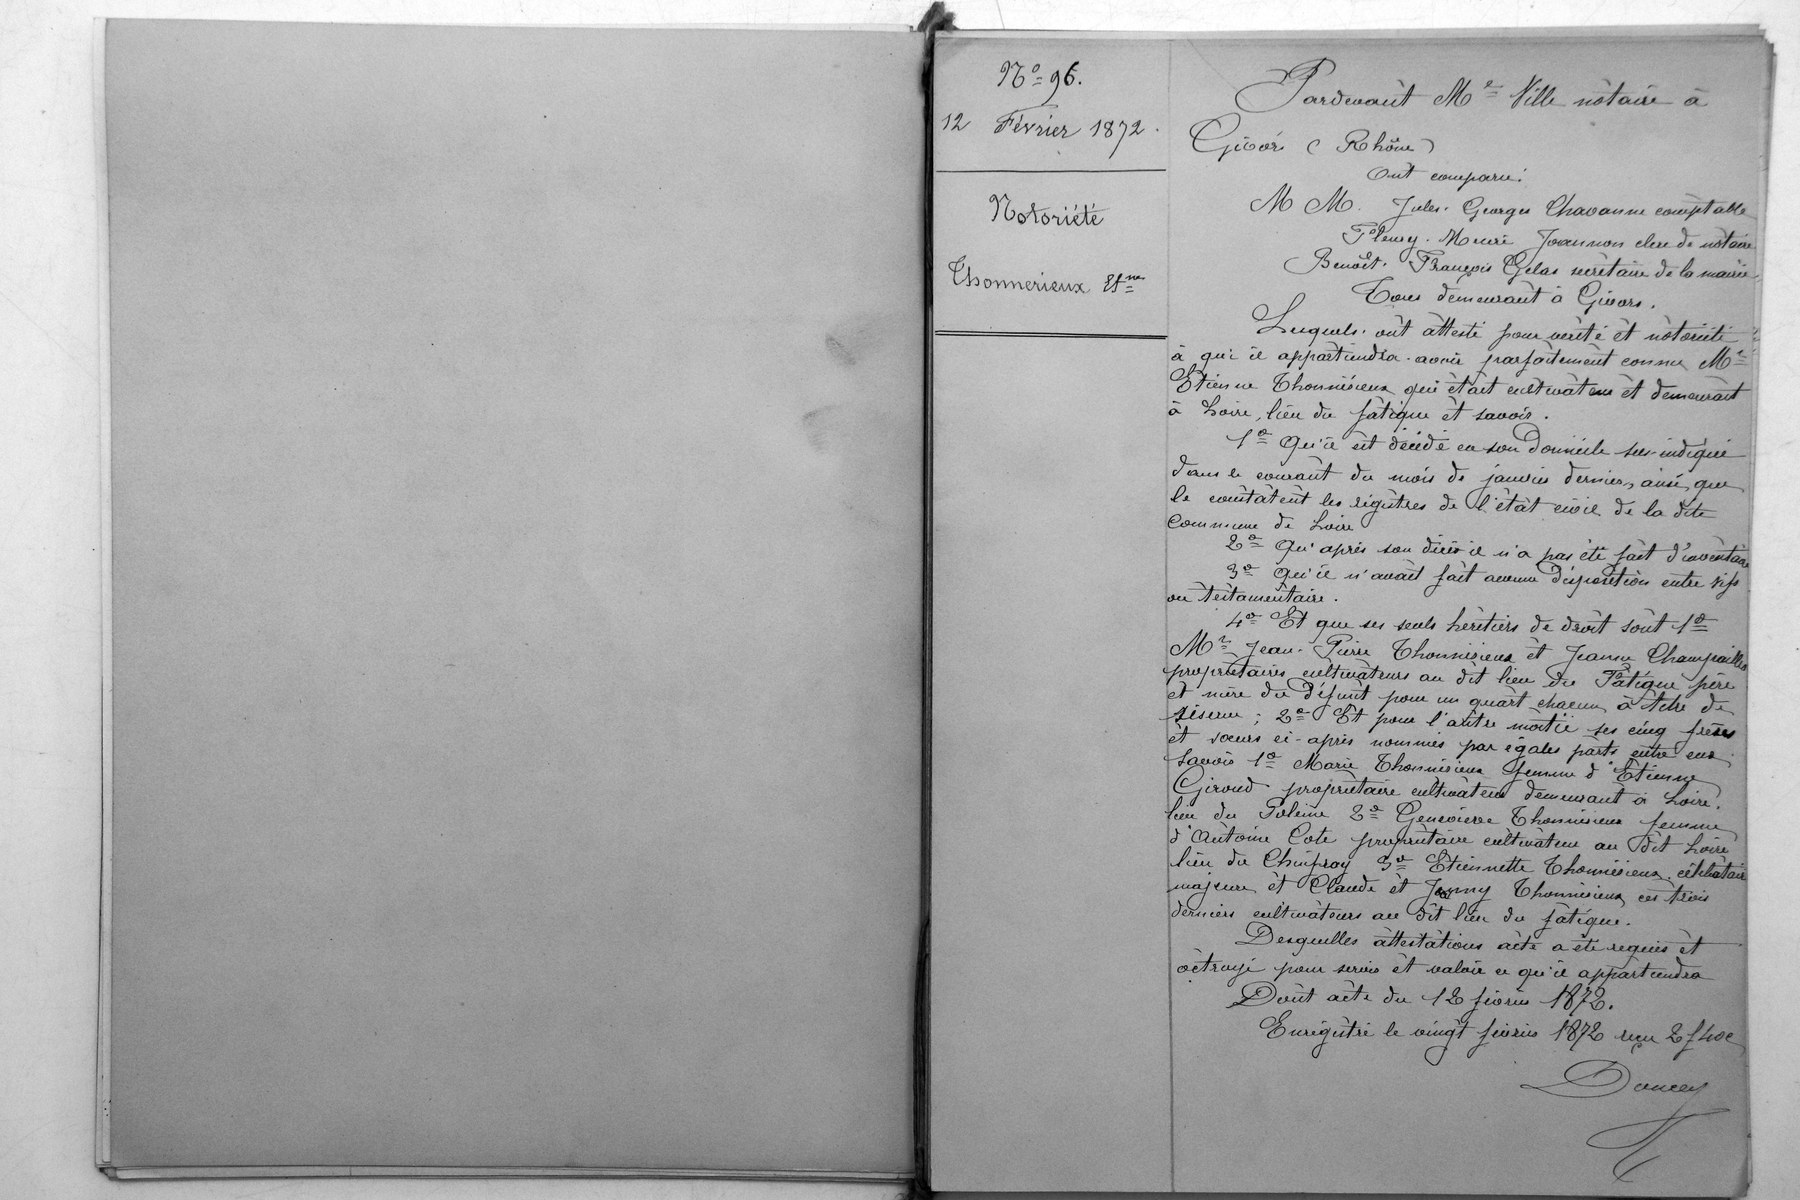 Nº 96.
12 Février 1872.
Notoriété
Thonnerieux Etne
Pardevant Me Ville notaire à
Givors (Rhône)
Ont comparu:
M M. Jules-Georges Chavanne comptable
Fleury-Henri Joannon clerc de notaire
Benoît-François Gelas secrétaire de la mairie
Tous demeurant à Givors.
Lesquels ont attesté pour vérité et notoriété
à qui il appartiendra avoir parfaitement connu Mr
Etienne Thonnérieux qui était cultivateur et demeurait
à Loire, lieu du fatigue et savoir.
1º Qu'il est décédé en son Domicile sus-indiqué
dans le courant du mois de janvier dernier, ainsi que
le constatent les régistres de l'état civil de la dite
Commune de Loire
2º Qu'après son décès il n'a pas été fait d'inventaire
3º Qu'il n'avait fait aucune Disposition entre vifs
ou testamentaire.
4º Et que ses seuls héritiers de droit sont 1º
Mr Jean-Pierre Thonnérieux et Jeanne Champailler
propriétaires cultivateurs au dit lieu du Fatigue père
et mère du Défunt pour un quart chacun à titre de
réserve; 2º Et pour l'autre moitié ses cinq frères
et sœurs ci-après nommés par égales parts entre eux
Savoir 1º Marie Thonnérieux femme d'Etienne
Giroud propriétaire cultivateur demeurant à Loire,
lieu du 2º Geneviève Thonnérieux femme
d'Antoine Cote propriétaire cultivateur au dit Loire
lieu du 3º Etiennette Thonnérieux célibataire
majeure et Claude et Jenny Thonnérieux ces trois
derniers cultivateurs au dit lieu du fatigue.
Desquelles attestations acte a été requis et
octroyé pour servir et valoir ce qu'il appartiendra
Dont acte du 12 février 1872.
Enregistré le vingt février 1872 reçu 2f40c